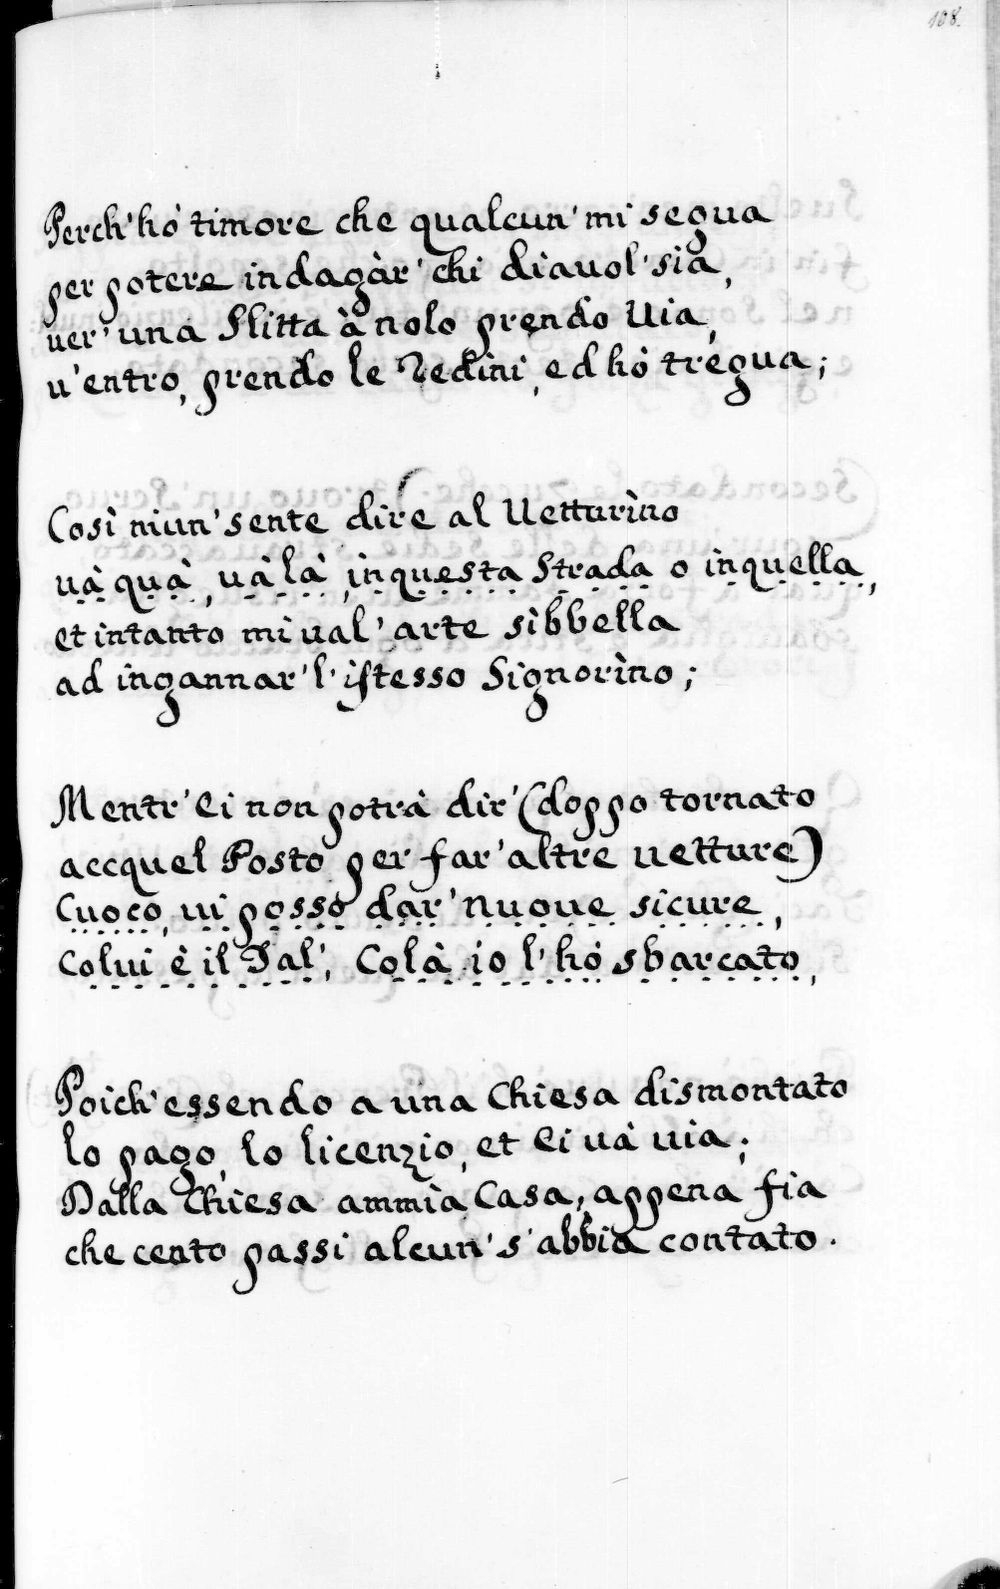 108.
Perch' hò timore che qualcun' mi segua
per potere indagàr' chi diauol' sia,
uer' una Slitta à nolo prendo Uia,
u'entro, prendo le Redini, ed hò tregua;
Così niun' sente dire al Uetturino
uà quà, uà là, in questa Strada o in quella,
et intanto mi ual' arte sì bbella
ad ingannar' l' istesso Signorino;
Mentr' Ei non potrà dir' (doppo tornato
accquel Posto per far' altre uetture)
Cuoco, ui posso dar' nuoue sicure,
Colui è il Tal', Colà io l' hò sbarcato,
Poich' essendo a una Chiesa dismontato
lo pago, lo licenzio, et Ei uà uia;
Dalla Chiesa ammia Casa, appena fia
che cento passi alcun' s' abbia contato.